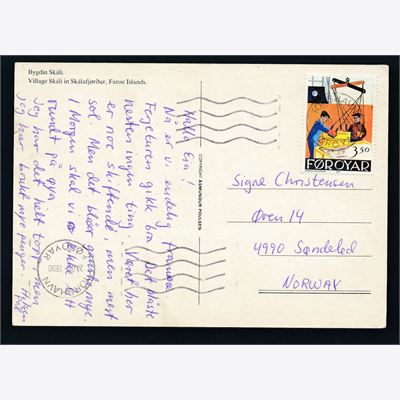 Bygdin Skáli.
Village Skáli in Skálafjørður, Faroe Islands.
Hallo
Nå er vi endelig framme
Fergeturen gikk bra. Det blåste
nesten ingen ting. Været her
er noe skiftende, men mest
sol. Men det blåser ganske mye.
I Morgen skal vi
rundt på øya
Jeg har det helt topp, men
Jeg har brukt mye penger.
COPYRIGHT ASMUNDUR POULSEN
3,50
FØROYAR
TÓRSHAVN
1990
FØROYAR
Signe Christensen
Øren 14
4990 Søndeled
NORWAY